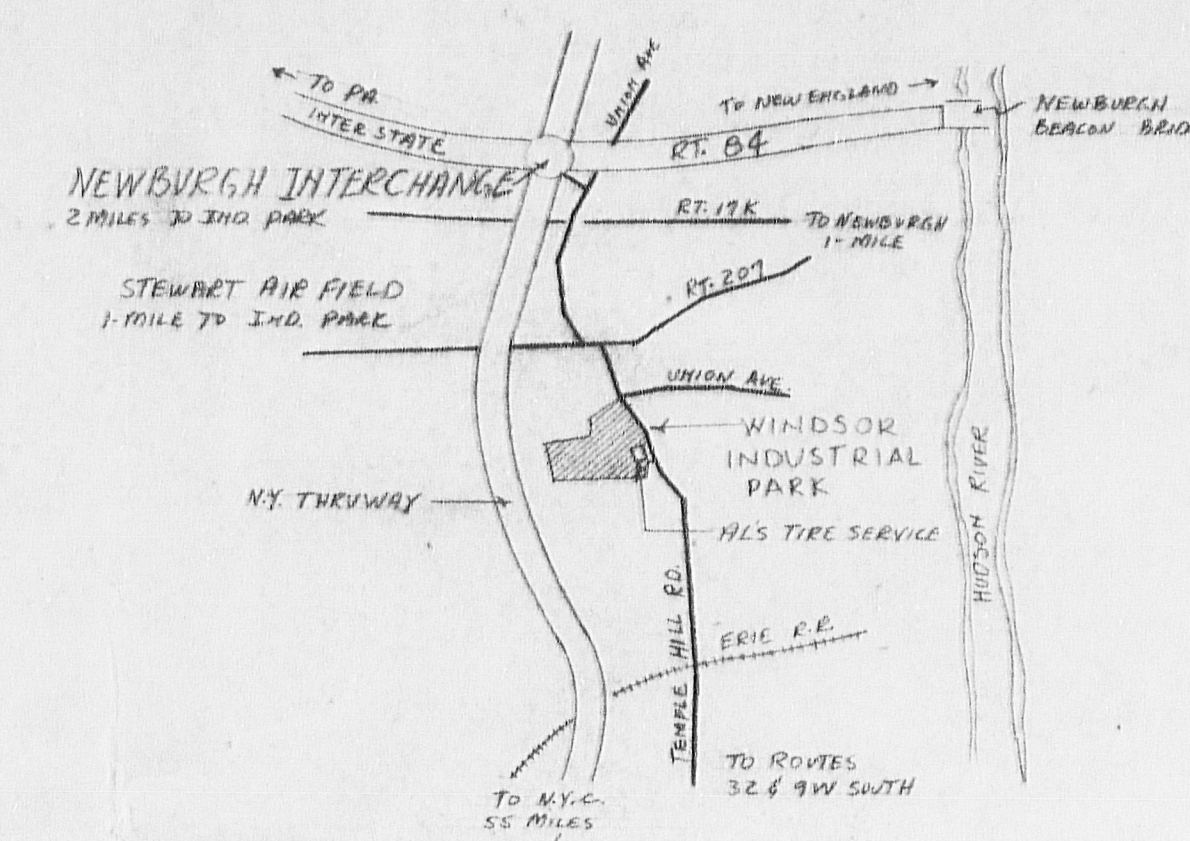 UNION AVE
TO PA.
INTER STATE
TO NEW ENGLAND
RT. 84
NEWBURGH
BEACON BRID
NEWBURGH INTERCHANGE
2 MILES TO IND. PARK
RT. 17K
TO NEWBURGH
1-MILE
STEWART AIR FIELD
1-MILE TO IND. PARK
RT. 207
UNION AVE.
WINDSOR
INDUSTRIAL
PARK
N.Y. THRUWAY
AL'S TIRE SERVICE
HUDSON RIVER
TEMPLE HILL RD.
ERIE R.R.
TO ROUTES
32 & 9W SOUTH
TO N.Y.C.
55 MILES